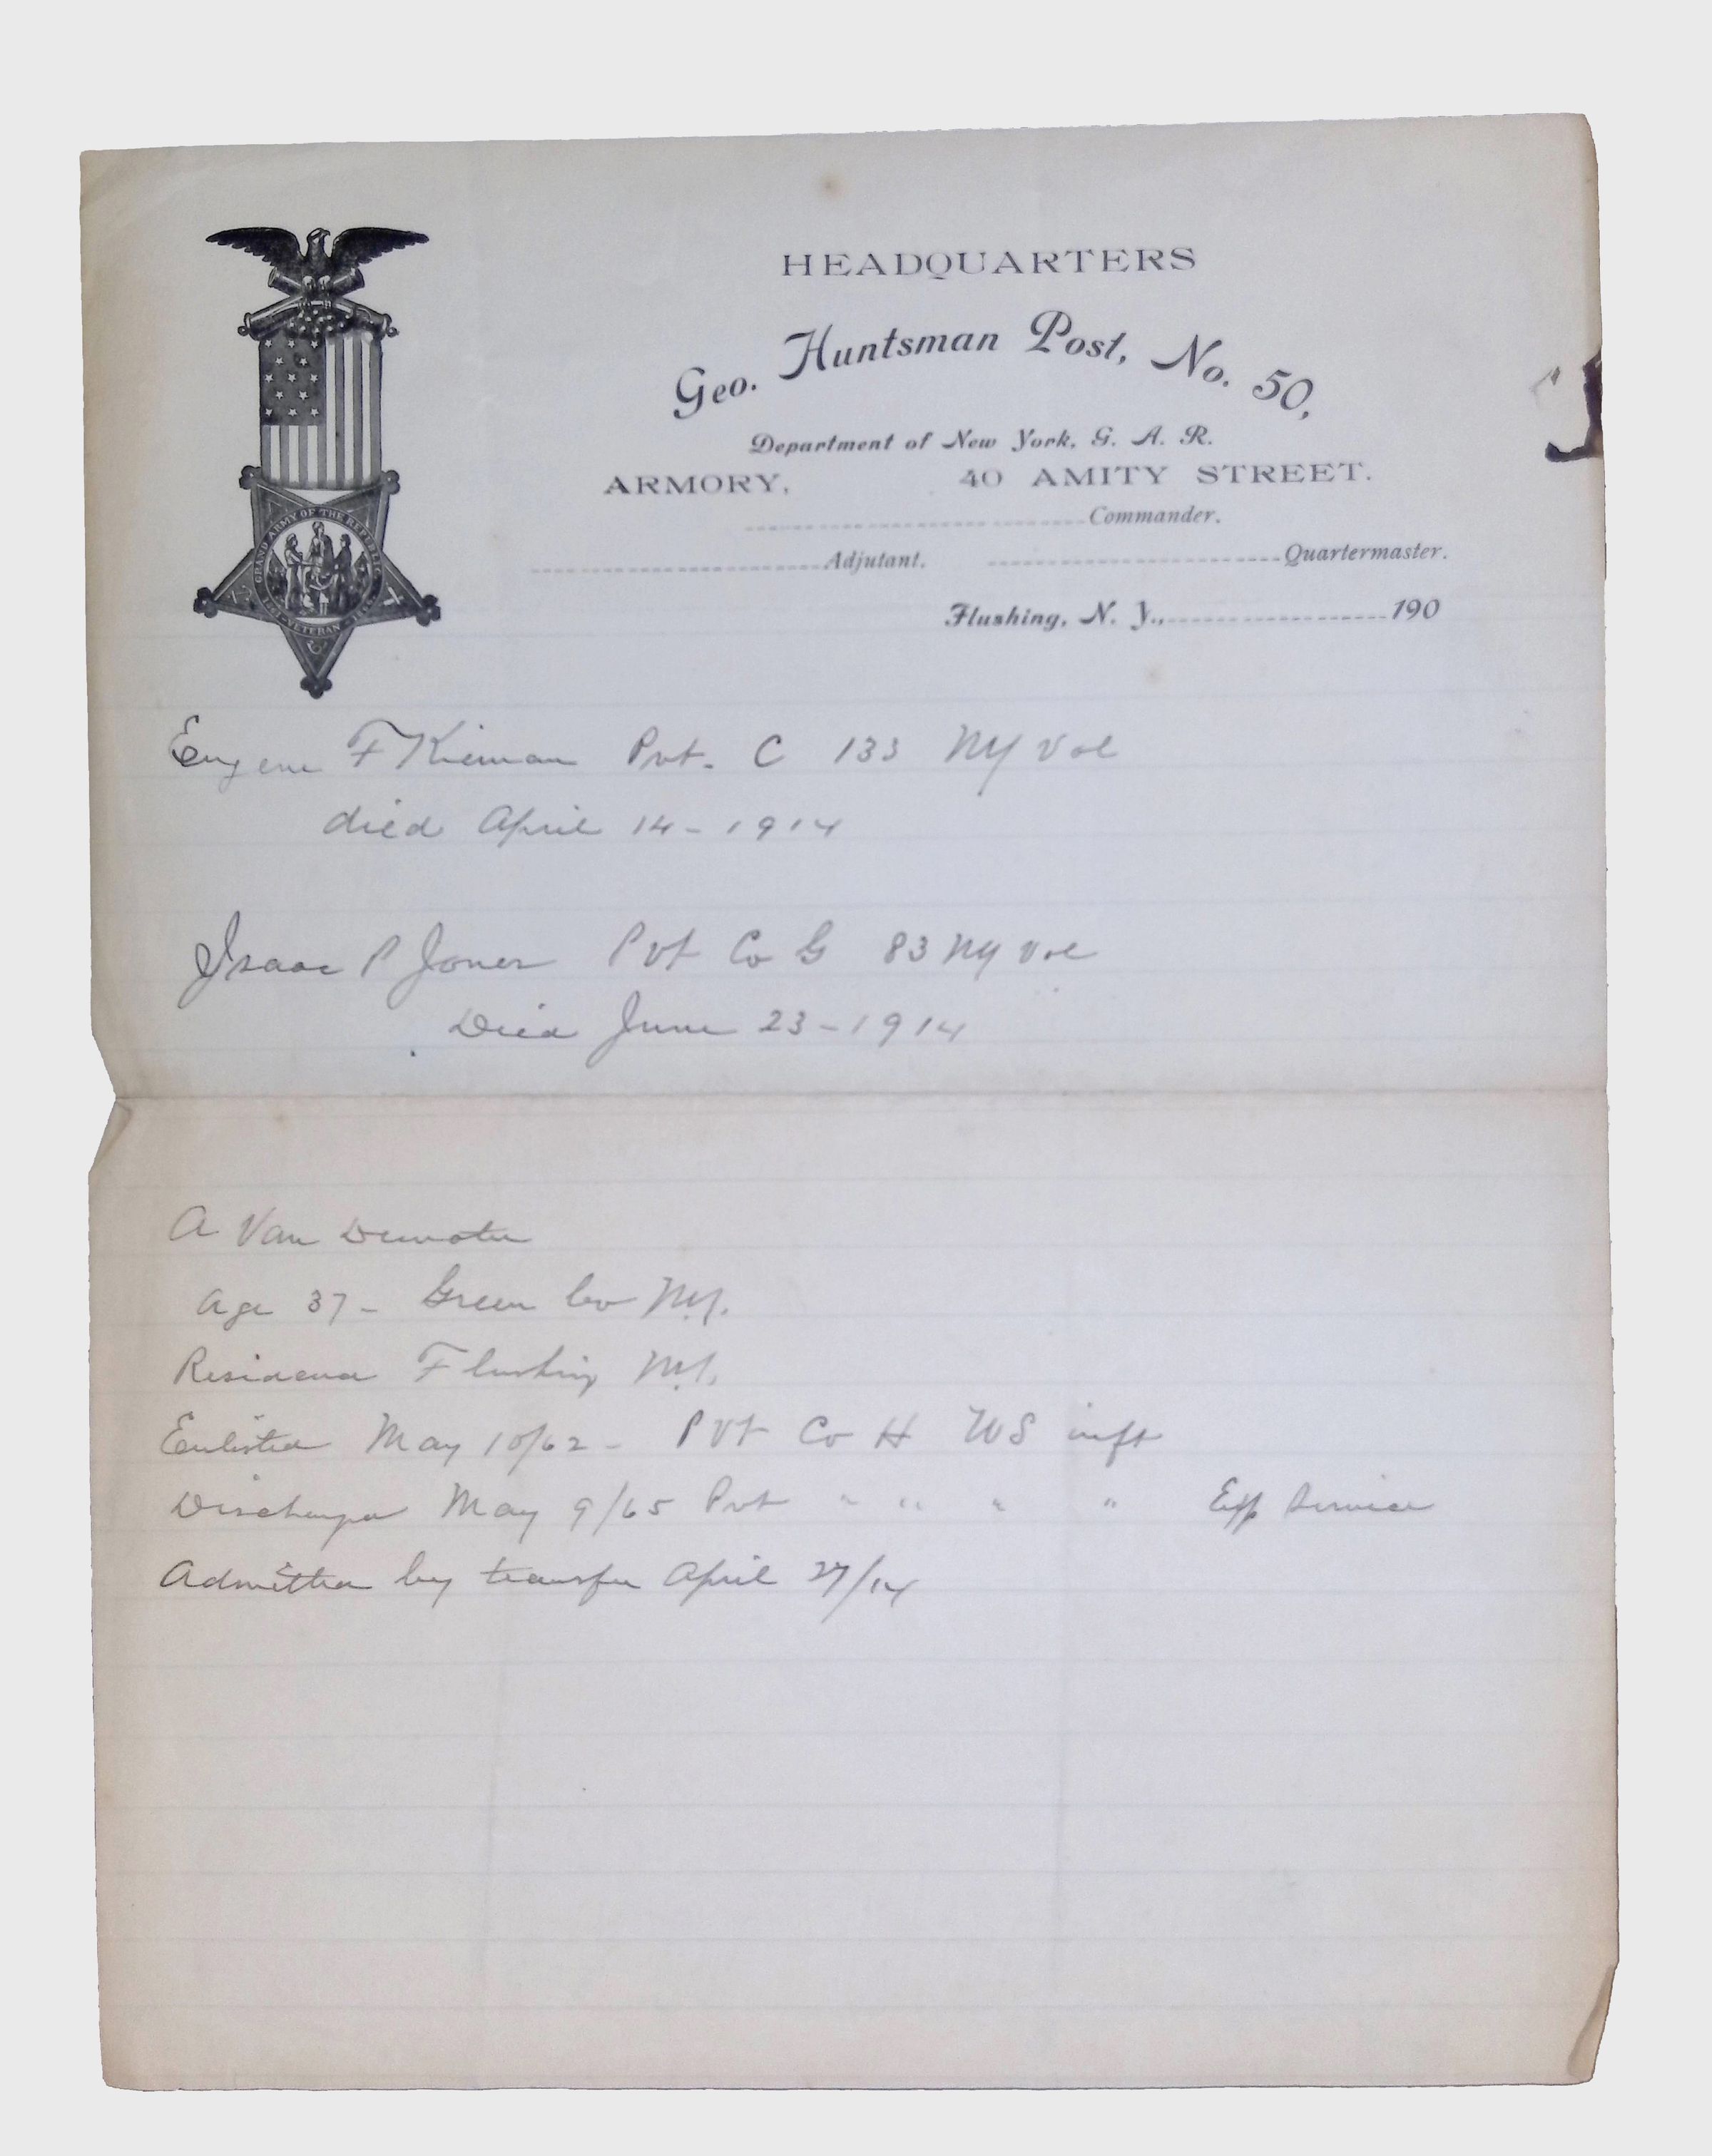 HEADQUARTERS
Geo. Huntsman Post, No. 50,
Department of New York, G. A. R.
ARMORY, 40 AMITY STREET.
Commander.
Adjutant. Quartermaster.
Flushing, N. Y., 190
GRAND ARMY OF THE REPUBLIC
VETERAN
Eugene F Kiernan Pvt. C 133 NY Vol
died April 14 - 1914
Isaac P Jones Pvt Co G 83 NY Vol
Died June 23 - 1914
A Van Dewater
Age 37 - Green Co N.Y.
Residence Flushing N.Y.
Enlisted May 10/62 - Pvt Co H US inft
Discharged May 9/65 Pvt " " " " Exp Service
Admitted by transfer April 27/14